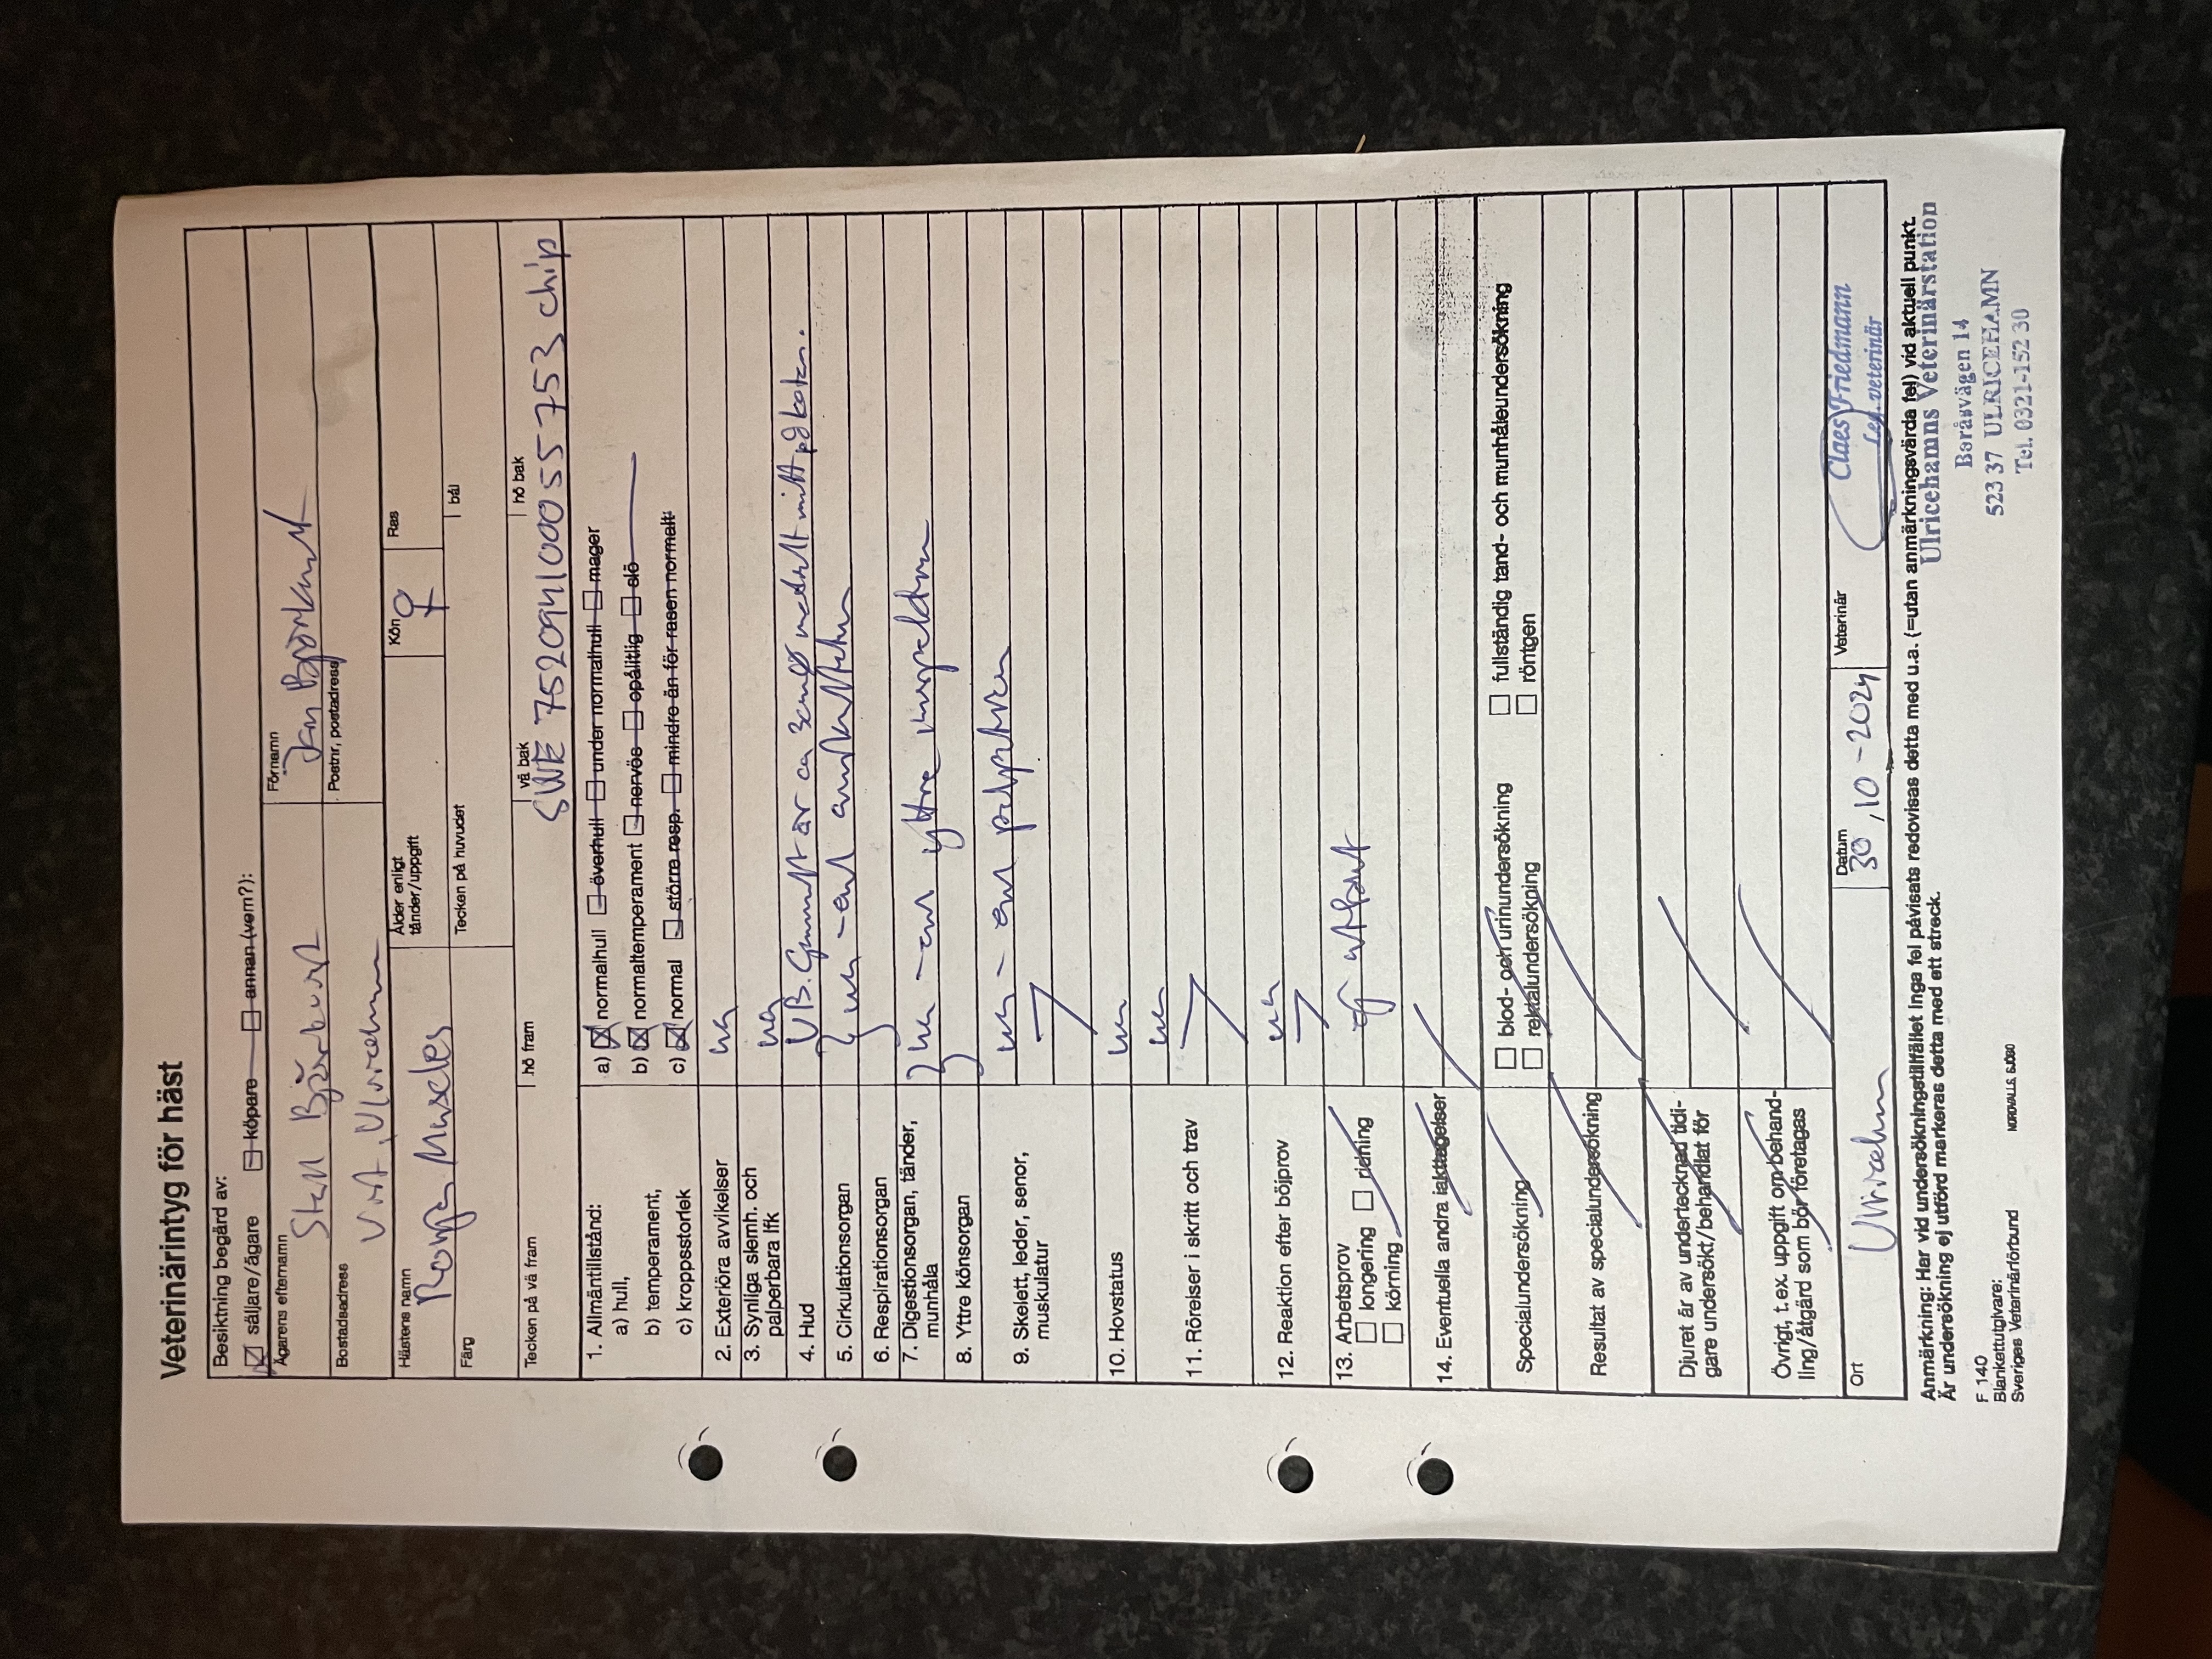 Veterinärintyg för häst
Besiktning begärd av:
säljare/ägare köpare annan (vem?):
Ägarens efternamn Förnamn
Stall Jan
Bostadsadress Postnr, postadress
Hästens namn Ålder enligt tänder/uppgift Kön Ras
♀
Färg Tecken på huvudet bål
Tecken på vä fram hö fram vä bak hö bak
SWE 752094100055753 chip
1. Allmäntillstånd:
a) hull, a) normalhull överhull under normalhull mager
b) temperament, b) normaltemperament nervös opålitlig slö
c) kroppsstorlek c) normal större resp. mindre än för rasen normalt:
2. Exteriöra avvikelser ua
3. Synliga slemh. och palperbara lfk ua
4. Hud V.B. är ca mitt på kotan.
5. Cirkulationsorgan ua - enl auskultation
6. Respirationsorgan
7. Digestionsorgan, tänder, munhåla ua - enl yttre inspektion
8. Yttre könsorgan
9. Skelett, leder, senor, muskulatur ua - enl palpation
10. Hovstatus ua
11. Rörelser i skritt och trav ua
12. Reaktion efter böjprov ua
13. Arbetsprov ej utfört
longering ridning
körning
14. Eventuella andra iakttagelser
Specialundersökning blod- och urinundersökning fullständig tand- och munhåleundersökning
rektalundersökning röntgen
Resultat av specialundersökning
Djuret är av undertecknad tidi-
gare undersökt/behandlat för
Övrigt, t.ex. uppgift om behand-
ling/åtgärd som bör företagas
Ort Datum Veterinär
30,10-2024 Claes Friedmann
Leg. veterinär
Anmärkning: Har vid undersökningstillfället inga fel påvisats redovisas detta med u.a. (=utan anmärkningsvärda fel) vid aktuell punkt.
Är undersökning ej utförd markeras detta med ett streck.
Ulricehamns Veterinärstation
Boråsvägen 14
523 37 ULRICEHAMN
Tel. 0321-152 30
F 140
Blankettutgivare:
Sveriges Veterinärförbund